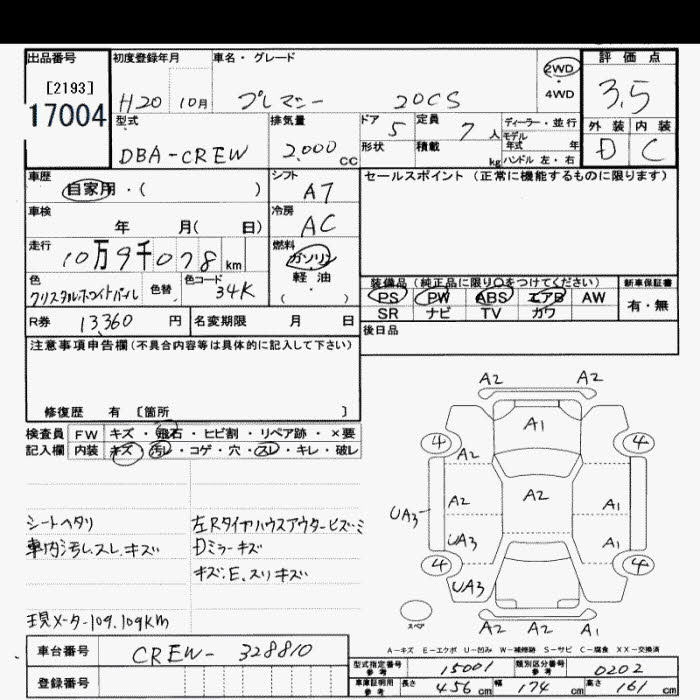 出品番号 初度登録年月 車名・グレード 2WD・4WD 評価点
[2193]
17004
H20 10月 プレマシー 20CS 3.5
型式 排気量 ドア 定員 ディーラー・並行 外装 内装
DBA-CREW 2,000 CC 5 7人 モデル年式 年 D C
形状 積載 kg ハンドル 左・右
車歴 シフト セールスポイント(正常に機能するものに限ります)
自家用・( ) A7
車検 冷房
年 月( 日) AC
走行 燃料
10万9千078km ガソリン
軽・油
( )
色 色替 色コード 装備品(純正品に限り○をつけてください) 新車保証書
クリスタルホワイトパール 34K PS PW ABS エアB AW 有・無
SR ナビ TV カワ
R券 13360 円 名変期限 月 日
後日品
注意事項申告欄(不具合内容等は具体的に記入して下さい)
修復歴 有 〔箇所 〕
検査員 FW キズ・飛石・ヒビ割・リペア跡・×要
記入欄 内装 キズ・汚レ・コゲ・穴・スレ・キレ・破レ
A2 A2
A1
4 4
A2
A2 A2 A1
UA3
UA3 A1
4 4
UA3
A2 A2 A2
スペア
シートヘタリ 左Rタイヤハウスアウタービス・ミ
車内汚レ.スレ.キズ Dミラーキズ
キズ.E.スリキズ
現メーター109.109km
A-キズ E-エクボ U-凹み W-補修跡 S-サビ C-腐食 XX-交換済
車台番号 CREW-328810
登録番号
型式指定番号 参考 15001 類別区分番号 参考 0202
車庫証明用 参考 長さ 456cm 幅 174cm 高さ 161cm